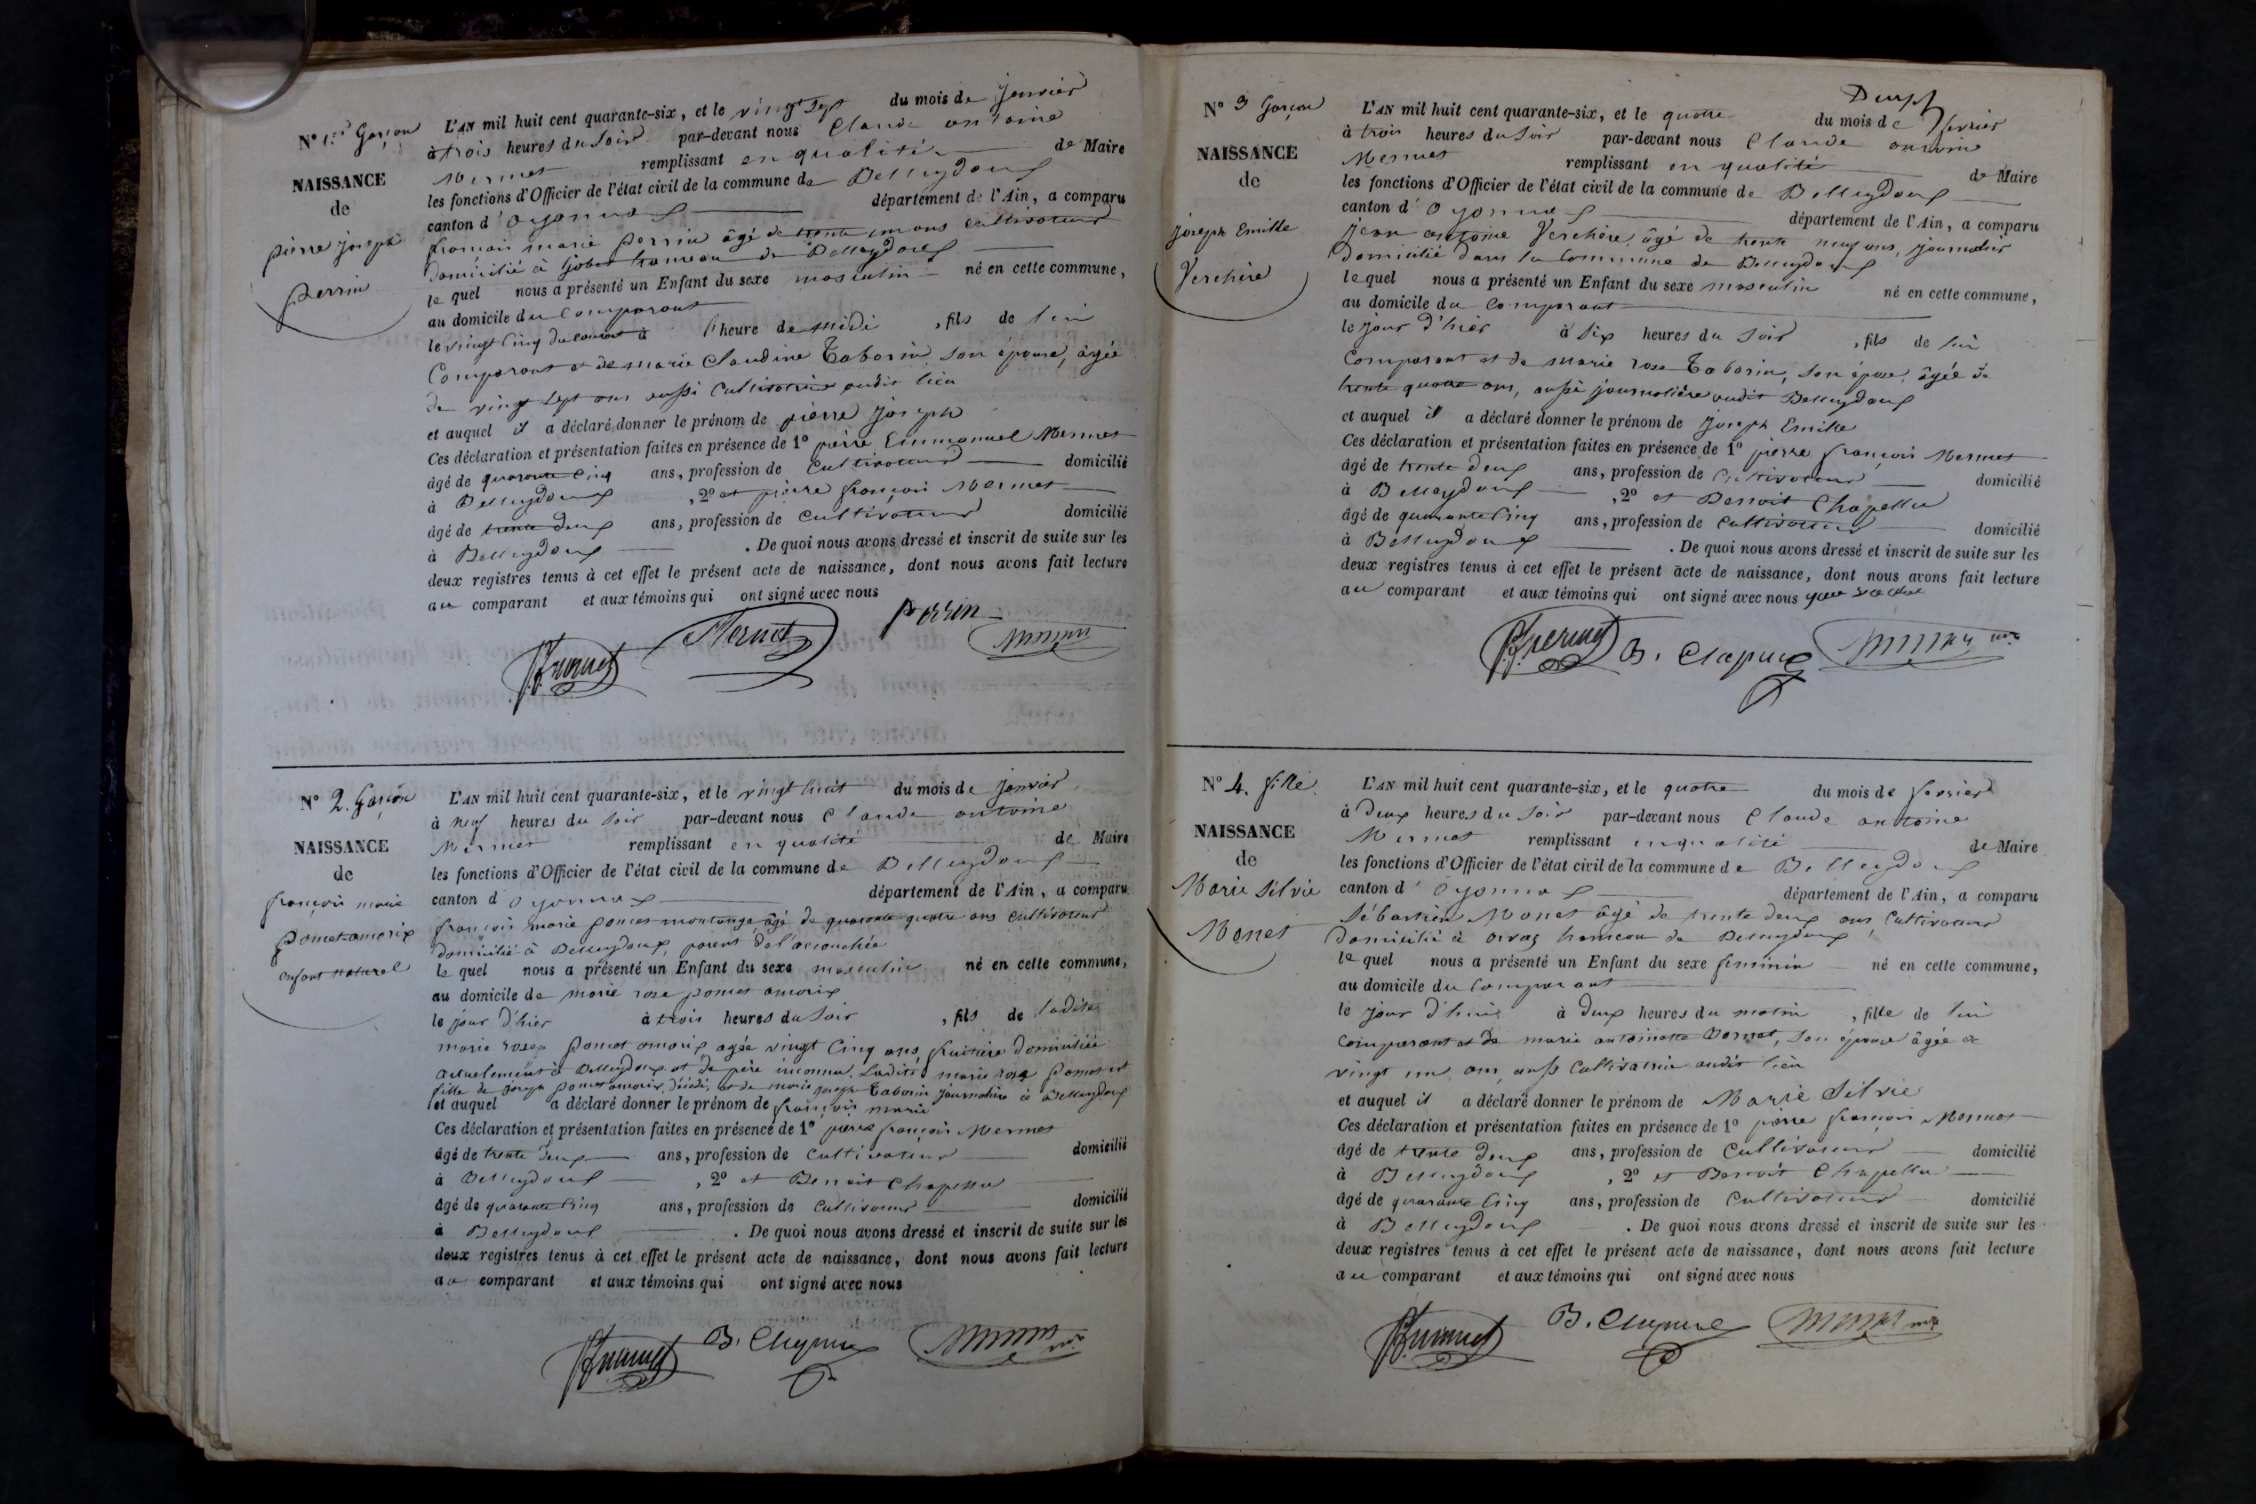 N° 1er Garçon
NAISSANCE
de
pierre joseph
perrin
L'AN mil huit cent quarante-six, et le vingt sept du mois de janvier
à trois heures du soir par-devant nous Claude antoine
Mermet remplissant en qualité de Maire
les fonctions d'Officier de l'état civil de la commune de Belleydoux
canton d'Oyonnax département de l'Ain, a comparu
françois marie perrin âgé de trente un ans cultivateur
domicilié à gobet hameau de Belleydoux
le quel nous a présenté un Enfant du sexe masculin né en cette commune,
au domicile du Comparant
le vingt Cinq du courant à l'heure de midi, fils de lui
Comparant et de marie Claudine Taborin, son épouse, âgée
de vingt sept ans aussi Cultivatrice audit lieu
et auquel il a déclaré donner le prénom de pierre joseph
Ces déclaration et présentation faites en présence de 1° pierre Emmanuel Mermet
âgé de quarante Cinq ans, profession de Cultivateur domicilié
à Belleydoux, 2° et pierre françois Mermet
âgé de trente deux ans, profession de Cultivateur domicilié
à Belleydoux. De quoi nous avons dressé et inscrit de suite sur les
deux registres tenus à cet effet le présent acte de naissance, dont nous avons fait lecture
au comparant et aux témoins qui ont signé avec nous
Mermet perrin
N° 2. Garçon
NAISSANCE
de
françois marie
pomet-amorix
enfant naturel
L'AN mil huit cent quarante-six, et le vingt huit du mois de janvier
à neuf heures du soir par-devant nous Claude antoine
Mermet remplissant en qualité de Maire
les fonctions d'Officier de l'état civil de la commune de Belleydoux
canton d Oyonnax département de l'Ain, a comparu
françois marie pomet montange, âgé de quarante quatre ans cultivateur
domicilié à Belleydoux, parent de l'accouchée
le quel nous a présenté un Enfant du sexe masculin né en cette commune,
au domicile de marie rose pomet amorix
le jour d'hier à trois heures du soir, fils de ladite
marie rose pomet amorix agée vingt Cinq ans, fruitière domiciliée
actuelement à Belleydoux et de père inconnu. Ladite marie rose pomet est
fille de joseph pomet amorix, décédé, et de marie joseph Taborin journalière à Belleydoux
et auquel a déclaré donner le prénom de françois marie
Ces déclaration et présentation faites en présence de 1° pierre françois Mermet
âgé de trente deux ans, profession de Cultivateur domicilié
à Belleydoux, 2° et Benoit Chapellu
âgé de quarante Cinq ans, profession de Cultivateur domicilié
à Belleydoux. De quoi nous avons dressé et inscrit de suite sur les
deux registres tenus à cet effet le présent acte de naissance, dont nous avons fait lecture
au comparant et aux témoins qui ont signé avec nous
Deux
N° 3 Garçon
NAISSANCE
de
joseph Emille
Verchère
L'AN mil huit cent quarante-six, et le quatre du mois de fevrier
à trois heures du soir par-devant nous Claude antoine
Mermet remplissant en qualité de Maire
les fonctions d'Officier de l'état civil de la commune de Belleydoux
canton d'Oyonnax département de l'Ain, a comparu
jean antoine Verchère, âgé de trente neuf ans, journalier
domicilié dans la commune de Belleydoux
le quel nous a présenté un Enfant du sexe masculin né en cette commune,
au domicile du Comparant
le jour d'hier à six heures du soir, fils de lui
Comparant et de marie rose Taborin, son épouse, âgée de
trente quatre ans, aussi journalière audit Belleydoux
et auquel il a déclaré donner le prénom de joseph Emille
Ces déclaration et présentation faites en présence de 1° pierre françois Mermet
âgé de trente deux ans, profession de Cultivateur domicilié
à Belleydoux, 2° et Benoit Chapellu
âgé de quarante Cinq ans, profession de Cultivateur domicilié
à Belleydoux. De quoi nous avons dressé et inscrit de suite sur les
deux registres tenus à cet effet le présent acte de naissance, dont nous avons fait lecture
au comparant et aux témoins qui ont signé avec nous
N° 4. fille
NAISSANCE
de
Marie Silvie
Monet
L'AN mil huit cent quarante-six, et le quatre du mois de fevrier
à deux heures du soir par-devant nous Claude antoine
Mermet remplissant en qualité de Maire
les fonctions d'Officier de l'état civil de la commune de Belleydoux
canton d'Oyonnax département de l'Ain, a comparu
Sébastien Monet âgé de trente deux ans, Cultivateur
domicilié à orvaz hameau de Belleydoux
le quel nous a présenté un Enfant du sexe feminin né en cette commune,
au domicile du Comparant
le jour d'hui à deux heures du matin, fille de lui
Comparant et de marie antoinette Vernet, son épouse âgée de
vingt un ans aussi Cultivatrice audit lieu
et auquel il a déclaré donner le prénom de Marie Silvie
Ces déclaration et présentation faites en présence de 1° pierre françois Mermet
âgé de trente deux ans, profession de Cultivateur domicilié
à Belleydoux, 2° et Benoit Chapellu
âgé de quarante Cinq ans, profession de Cultivateur domicilié
à Belleydoux. De quoi nous avons dressé et inscrit de suite sur les
deux registres tenus à cet effet le présent acte de naissance, dont nous avons fait lecture
au comparant et aux témoins qui ont signé avec nous